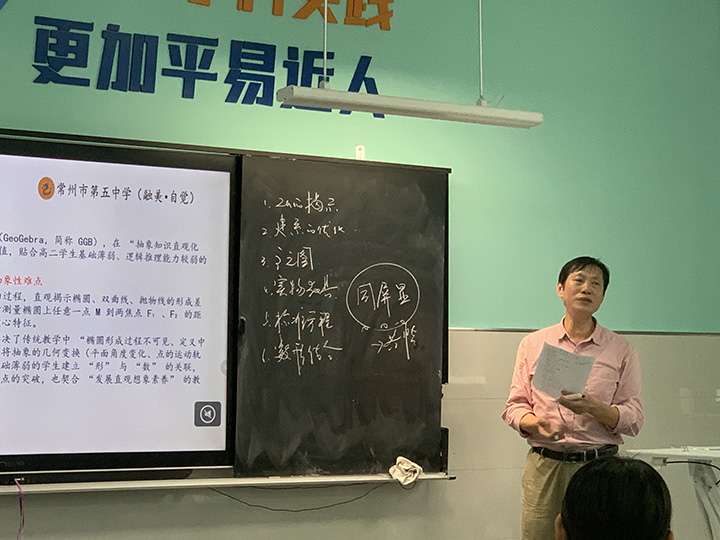 实践
更加平易近人
常州市第五中学（融美·自觉）
（GeoGebra，简称 GGB），在 “抽象知识直观化
值，贴合高二学生基础薄弱、逻辑推理能力较弱的
抽象性难点
过程，直观揭示椭圆、双曲线、抛物线的形成差
测量椭圆上任意一点 M 到两焦点 F₁ 、F₂ 的距
心特征。
决了传统教学中 “椭圆形成过程不可见、定义中
将抽象的几何变换（平面角度变化、点的运动轨
础薄弱的学生建立 “形” 与 “数” 的关联，
点的突破，也契合 “发展直观想象素养” 的教
1.
2. 建系
3.
4. 实物教具
5. 标准方程
6. 数形结合
同屏显